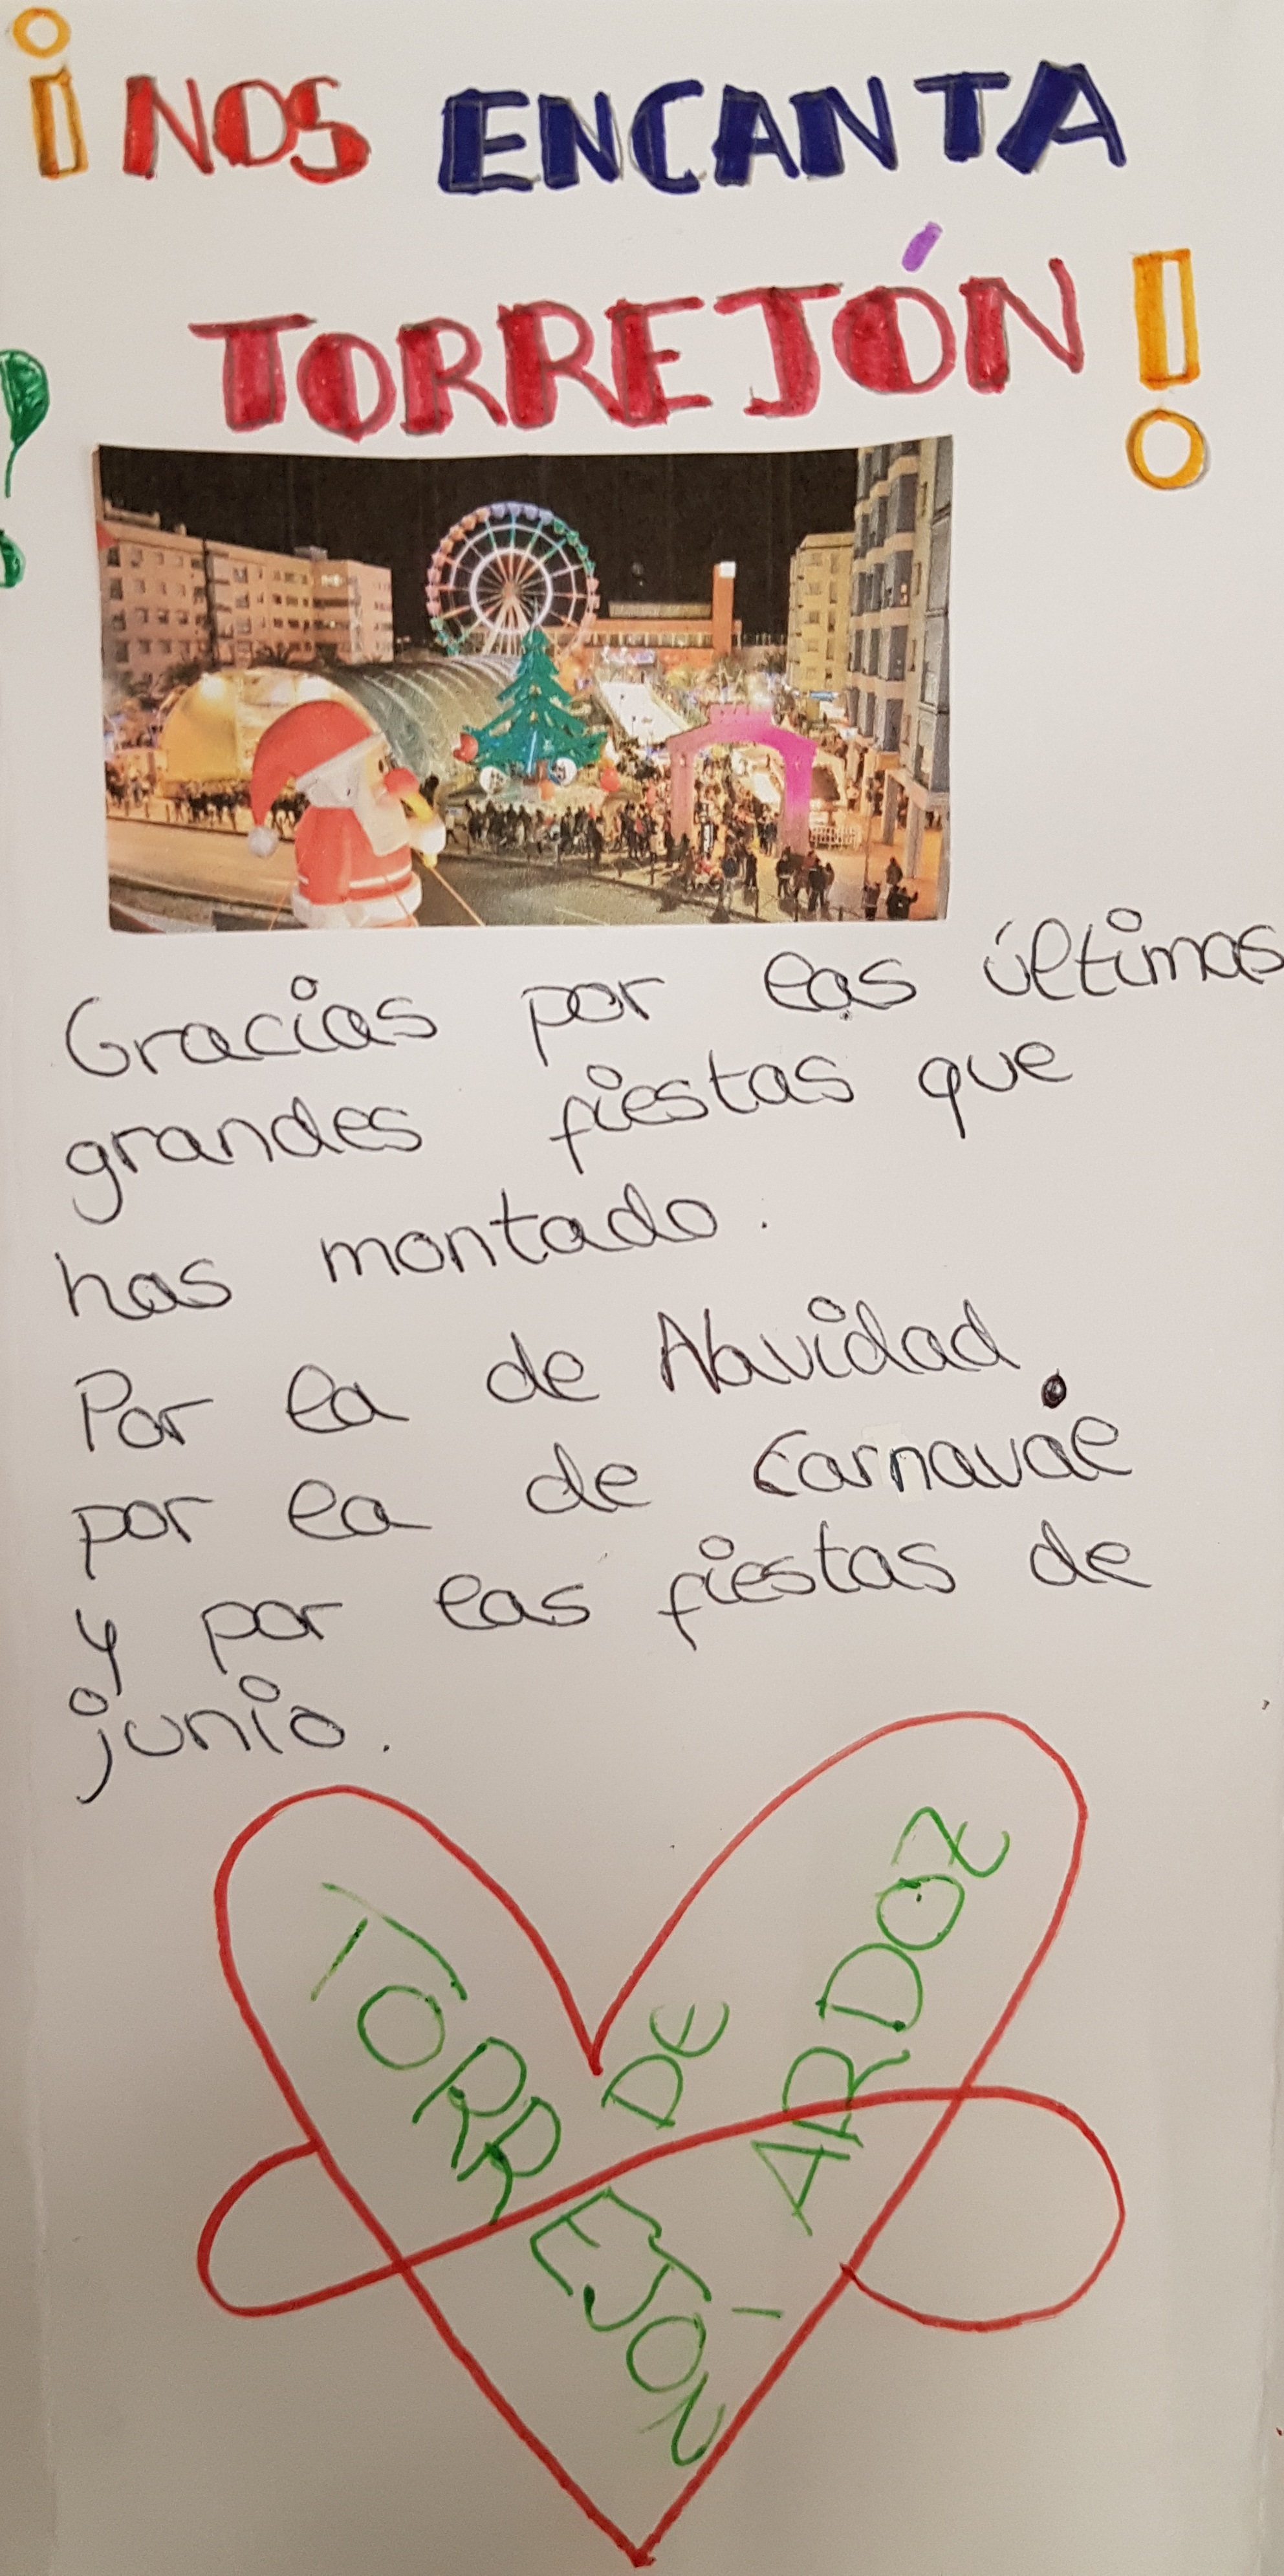 ¡NOS ENCANTA
TORREJÓN!
Gracias por las últimas
grandes fiestas que
has montado.
Por la de Navidad,
por la de Carnaval
y por las fiestas de
junio.
TORREJÓN
DE
ARDOZ